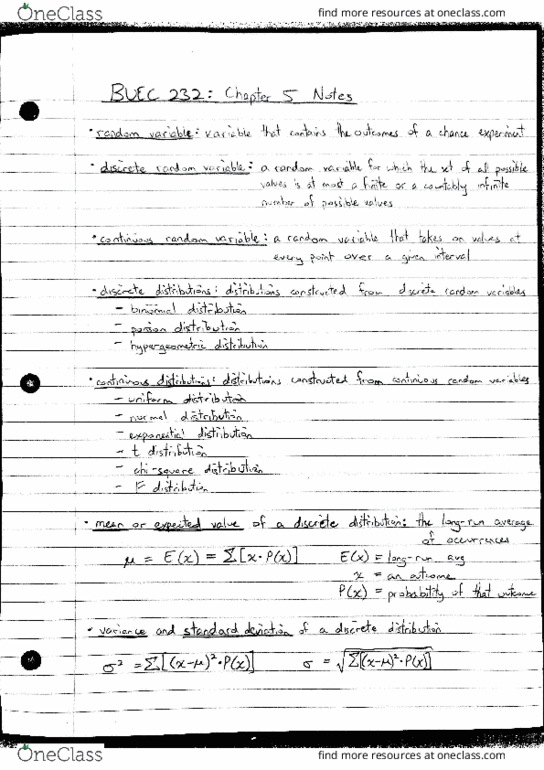 OneClass find more resources at oneclass.com
BUEC 232: Chapter 5 Notes
• random variable: variable that contains the outcomes of a chance experiment
• discrete random variable: a random variable for which the set of all possible
values is at most a finite or a countably infinite
number of possible values
• continuous random variable: a random variable that takes on values at
every point over a given interval
• discrete distributions: distributions constructed from discrete random variables
- binomial distribution
- poisson distribution
- hypergeometric distribution
• continuous distributions: distributions constructed from continuous random variables
- uniform distribution
- normal distribution
- exponential distribution
- t distribution
- chi-square distribution
- F distribution
• mean or expected value of a discrete distribution: the long-run average
of occurrences
μ = E(x) = Σ[x·P(x)] E(x) = long-run avg
x = an outcome
P(x) = probability of that outcome
• variance and standard deviation of a discrete distribution
σ² = Σ[(x-μ)²·P(x)] σ = √Σ[(x-μ)²·P(x)]
OneClass find more resources at oneclass.com